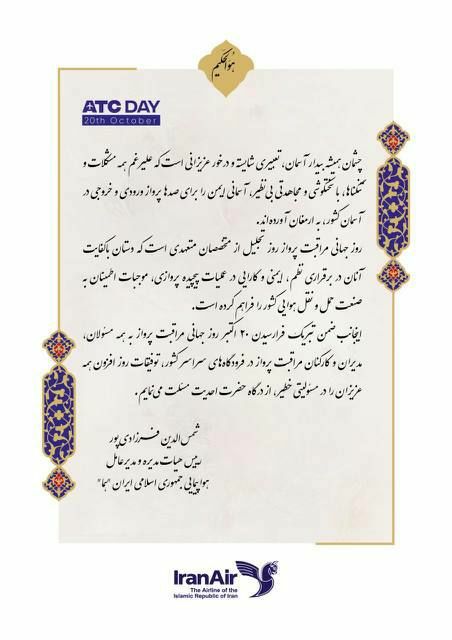 هوالحکیم
ATC DAY
20th October
چشمان همیشه بیدار آسمان، تعبیری شایسته و درخور عزیزانی است که علیرغم همه مشکلات و
تنگناها، با سختکوشی و مجاهدتی بی‌نظیر، آسمانی ایمن را برای صدها پرواز ورودی و خروجی در
آسمان کشور، به ارمغان آورده‌اند.
روز جهانی مراقبت پرواز روز تجلیل از متخصصان متعهدی است که دستان باکفایت
آنان در برقراری نظم، ایمنی و کارایی در عملیات پیچیده پروازی، موجبات اطمینان به
صنعت حمل و نقل هوایی کشور را فراهم کرده است.
اینجانب ضمن تبریک فرارسیدن ۲۰ اکتبر روز جهانی مراقبت پرواز به همه مسئولان،
مدیران و کارکنان مراقبت پرواز در فرودگاه‌های سراسر کشور، توفیقات روز افزون همه
عزیزان را در مسئولیتی خطیر، از درگاه حضرت احدیت مسئلت می‌نمایم.
شمس‌الدین فرزادی‌پور
رییس هیات مدیره و مدیرعامل
هواپیمایی جمهوری اسلامی ایران "هما"
IranAir
The Airline of the
Islamic Republic of Iran